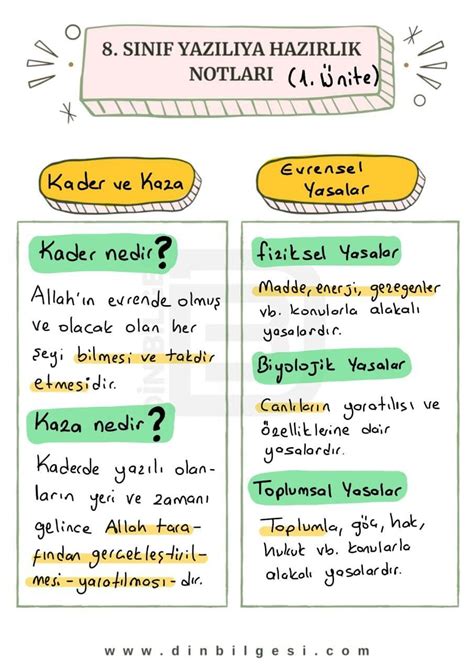 8. SINIF YAZILIYA HAZIRLIK
NOTLARI (1. Ünite)
Kader ve Kaza
Kader nedir?
Allah'ın evrende olmuş
ve olacak olan her
şeyi bilmesi ve takdir
etmesidir.
Kaza nedir?
Kaderde yazılı olan-
ların yeri ve zamanı
gelince Allah tara-
fından gerçekleştiril-
mesi-yaratılması-dır.
Evrensel
Yasalar
fiziksel Yasalar
Madde, enerji, gezegenler
vb. konularla alakalı
yasalardır.
Biyolojik Yasalar
Canlıların yaratılışı ve
özelliklerine dair
yasalardır.
Toplumsal Yasalar
Toplumla, göç, hak,
hukut vb. konularla
alakalı yasalardır.
DİNBİLGE
www.dinbilgesi.com